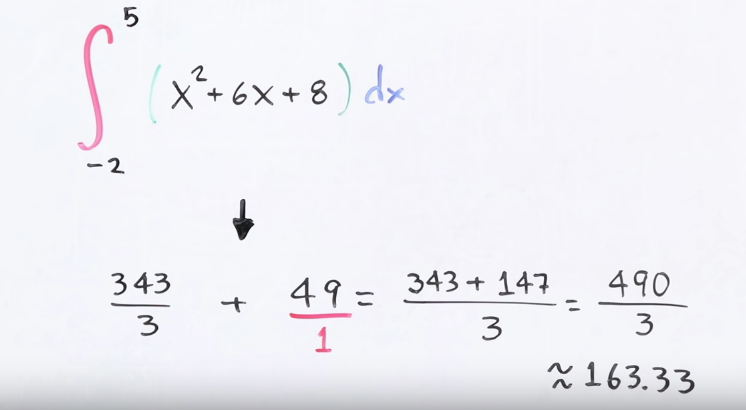 ∫₋₂⁵ (x² + 6x + 8) dx
343/3 + 49/1 = (343 + 147)/3 = 490/3
≈ 163.33